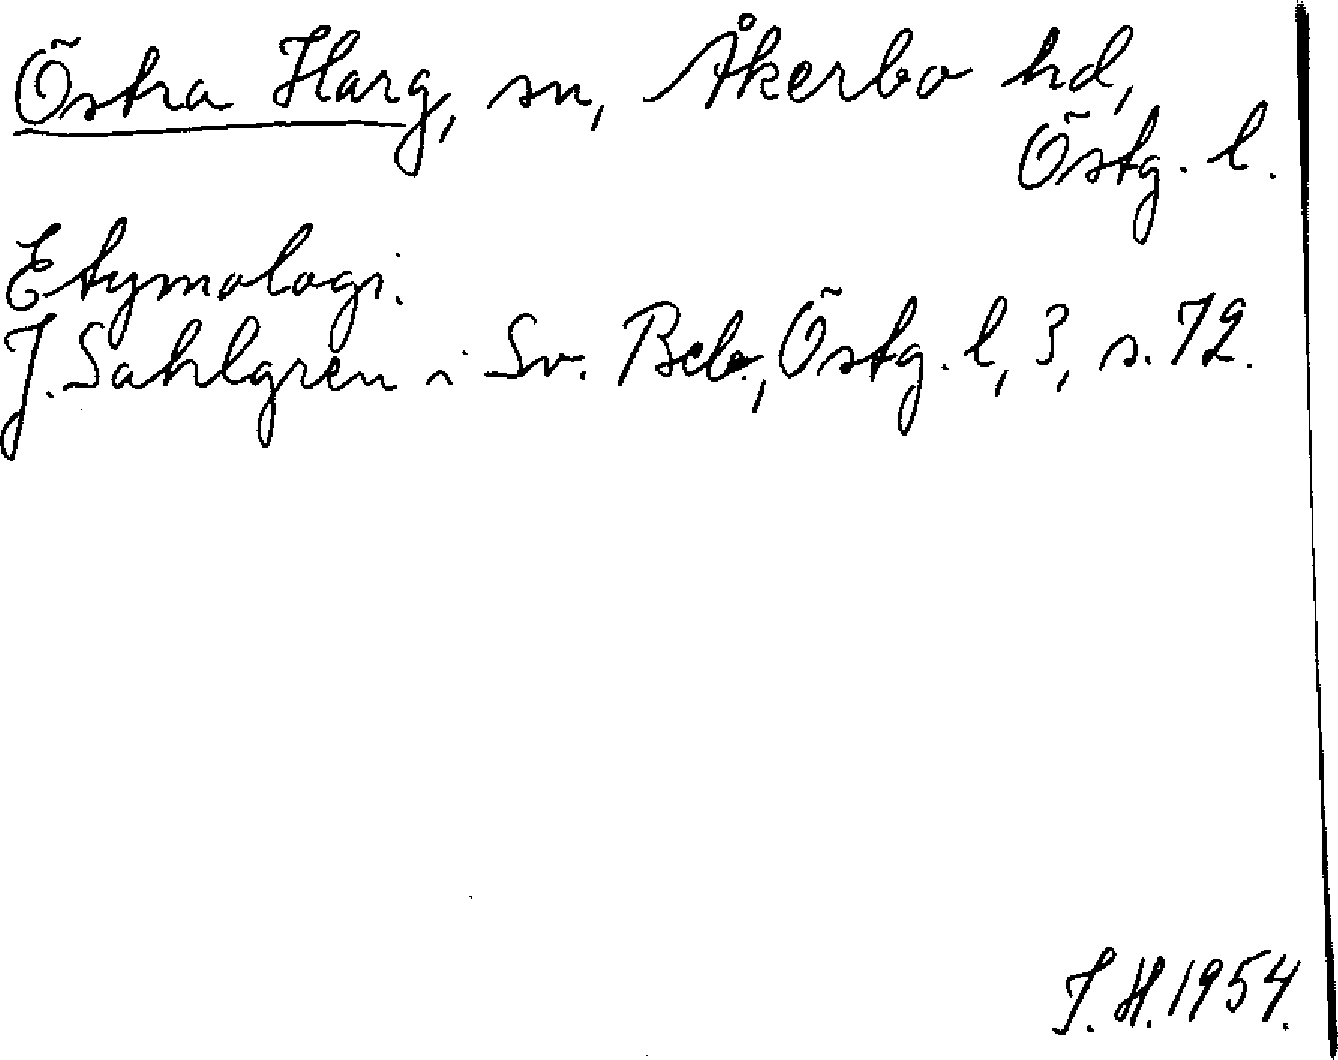 Östra Harg, sn, Åkerbo hd,
Östg. l.
Etymologi.
J. Sahlgren i Sv. Beb., Östg. l, 3, s. 72.
J. H. 1954.